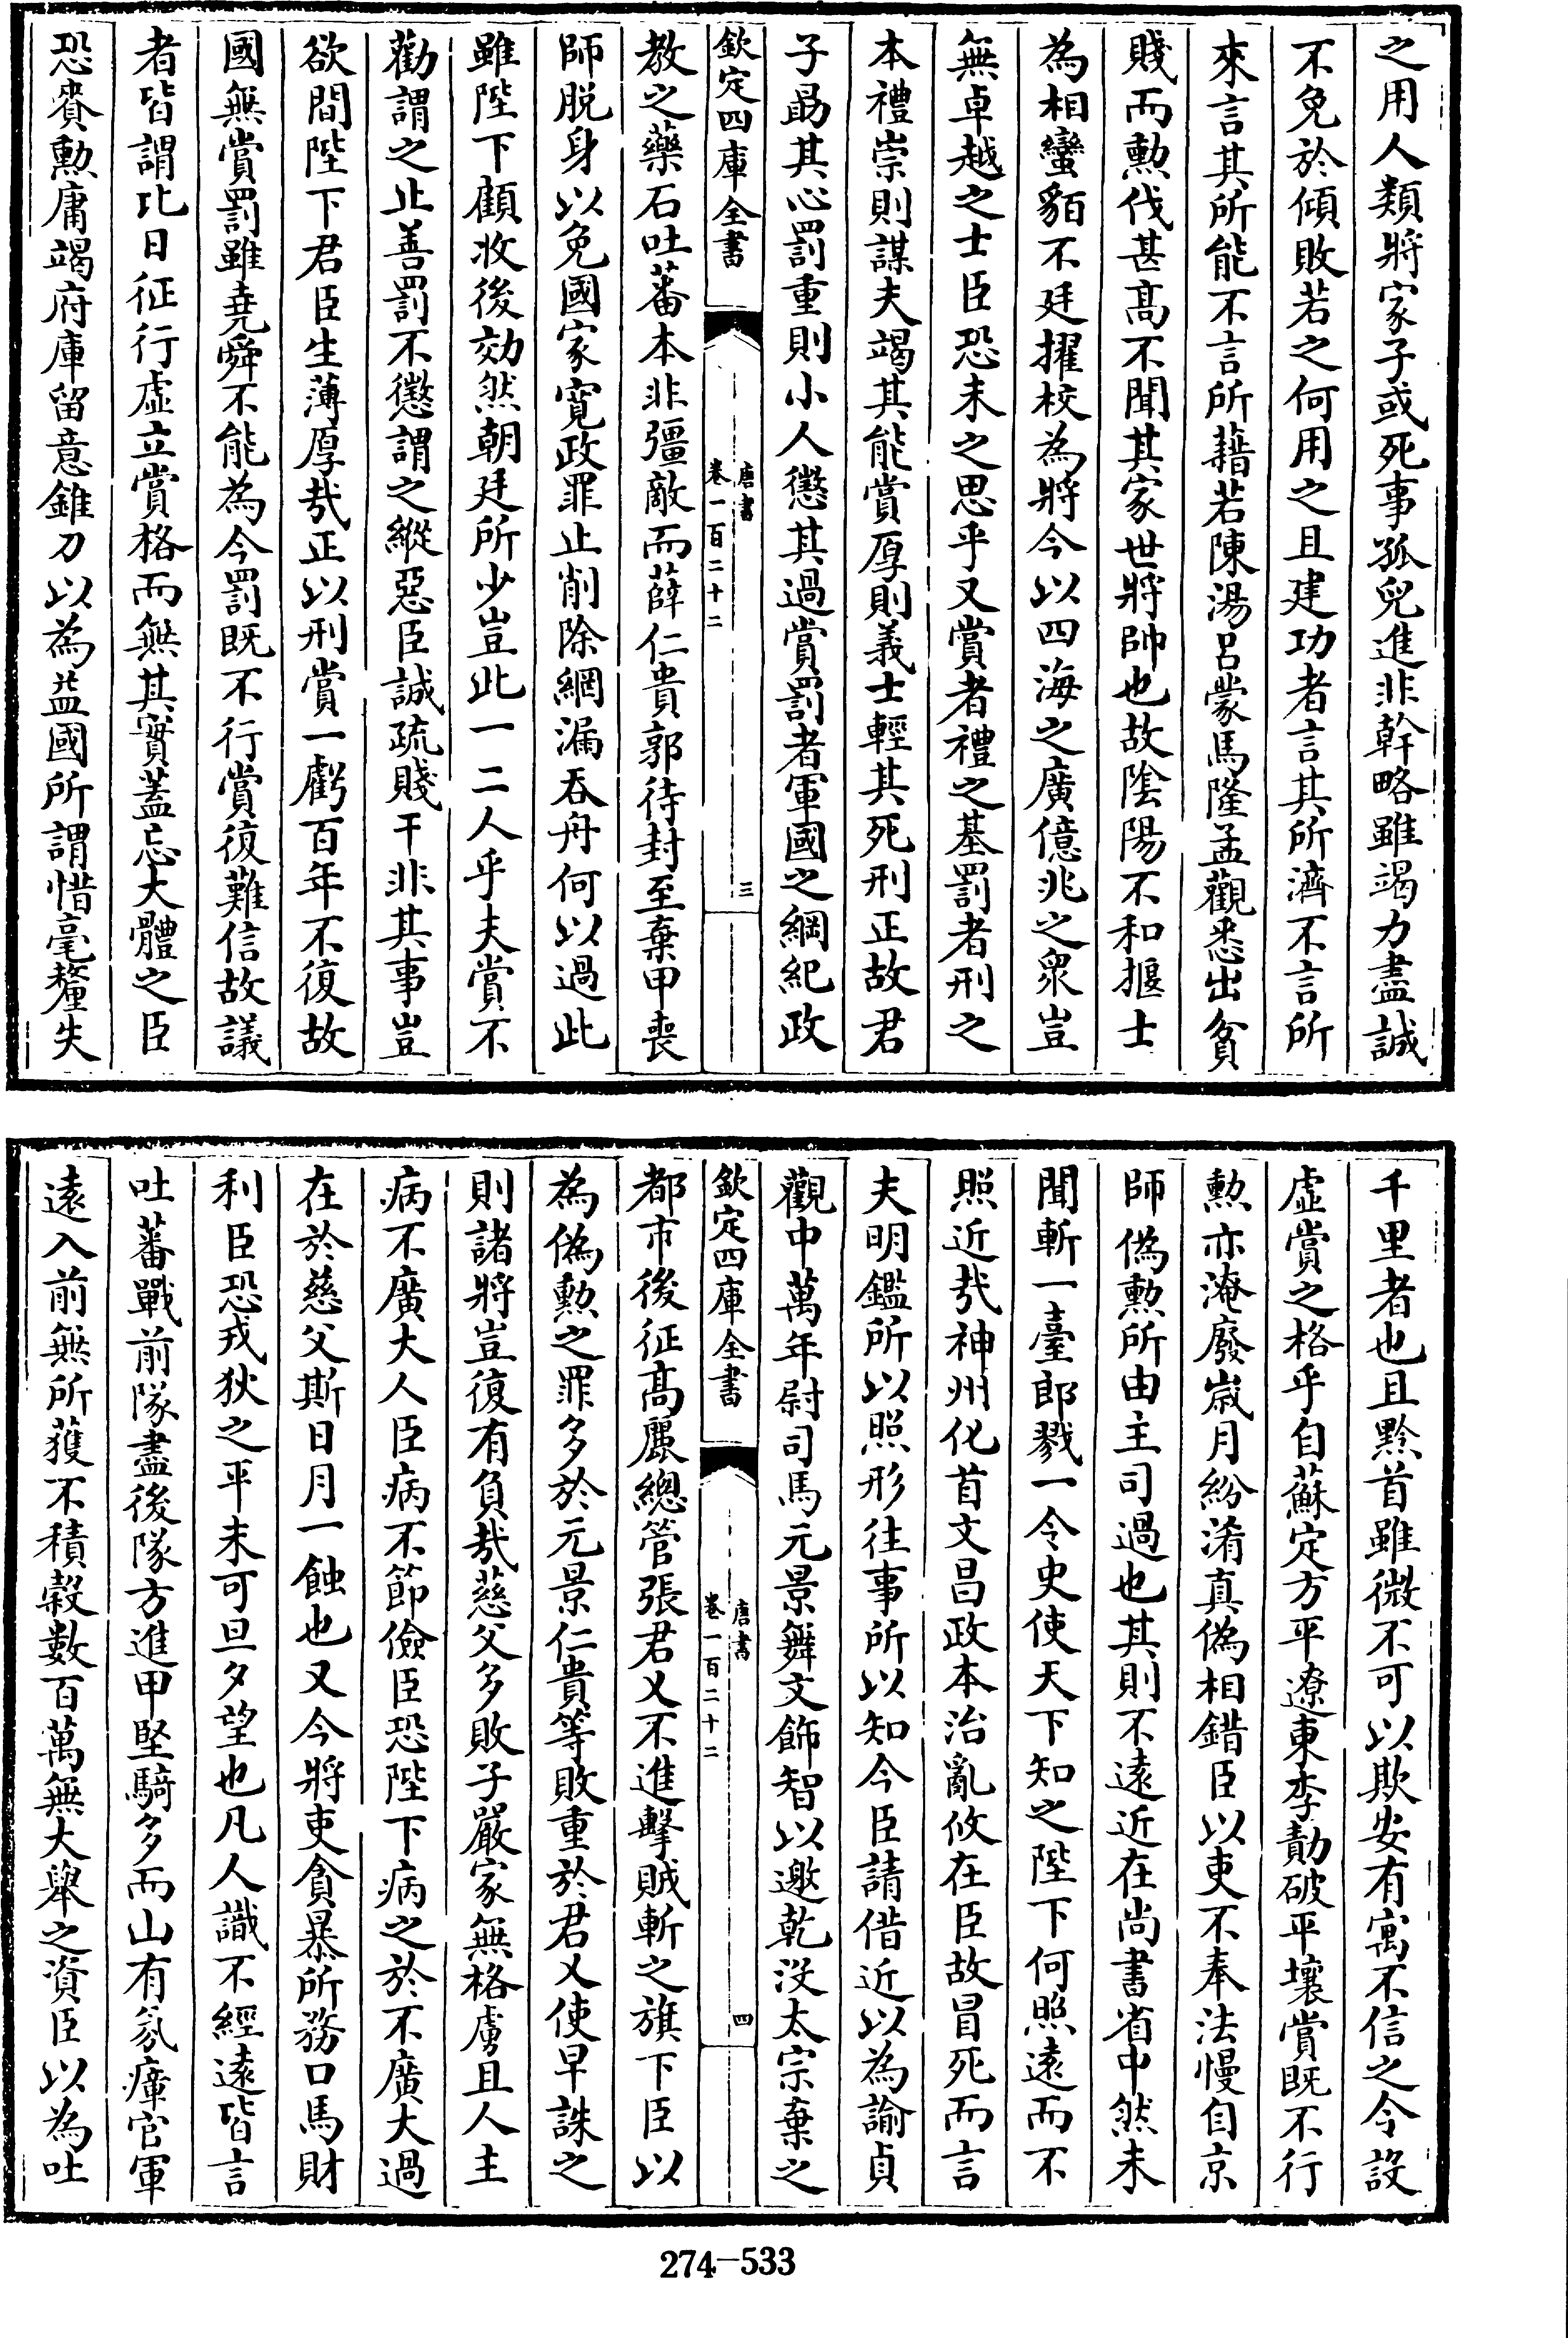 之用人類將家子或死事孤兒進非幹略雖竭力盡誠
不免於傾敗若之何用之且建功者言其所濟不言所
來言其所能不言所藉若陳湯呂蒙馬隆孟觀悉出貧
賤而勲伐甚髙不聞其家世將帥也故隂陽不和揠士
為相蠻貊不廷擢校為將今以四海之廣億兆之衆豈
無卓越之士臣恐未之思乎又賞者禮之基罰者刑之
本禮崇則謀夫竭其能賞厚則義士輕其死刑正故君
子勗其心罰重則小人懲其過賞罰者軍國之綱紀政
欽定四庫全書
唐書
卷一百二十二
三
教之藥石吐蕃本非彊敵而薛仁貴郭待封至棄甲喪
師脱身以免國家寛政罪止削除網漏吞舟何以過此
雖陛下顧收後効然朝廷所少豈此一二人乎夫賞不
勸謂之止善罰不懲謂之縱惡臣誠疏賤干非其事豈
欲間陛下君臣生薄厚㦲正以刑賞一虧百年不復故
國無賞罰雖堯舜不能為今罰既不行賞復難信故議
者皆謂比日征行虛立賞格而無其實蓋忘大體之臣
恐賚勲庸竭府庫留意錐刀以為益國所謂惜毫釐失
千里者也且黔首雖微不可以欺安有寓不信之令設
虛賞之格乎自蘇定方平遼東李勣破平壤賞既不行
勲亦淹廢嵗月紛淆真偽相錯臣以吏不奉法慢自京
師偽勲所由主司過也其則不遠近在尚書省中然未
聞斬一臺郎戮一令史使天下知之陛下何照遠而不
照近㦲神州化首文昌政本治亂攸在臣故冒死而言
夫明鑑所以照形往事所以知今臣請借近以為諭貞
觀中萬年尉司馬元景舞文飾智以邀乾没太宗棄之
欽定四庫全書
唐書
卷一百二十二
四
都市後征髙麗總管張君乂不進擊賊斬之旗下臣以
為偽勲之罪多於元景仁貴等敗重於君乂使早誅之
則諸將豈復有負㦲慈父多敗子嚴家無格虜且人主
病不廣大人臣病不節儉臣恐陛下病之於不廣大過
在於慈父斯日月一蝕也又今將吏貪暴所務口馬財
利臣恐戎狄之平未可旦夕望也凡人識不經遠皆言
吐蕃戰前隊盡後隊方進甲堅騎多而山有氛瘴官軍
逺入前無所獲不積穀數百萬無大舉之資臣以為吐
274-533